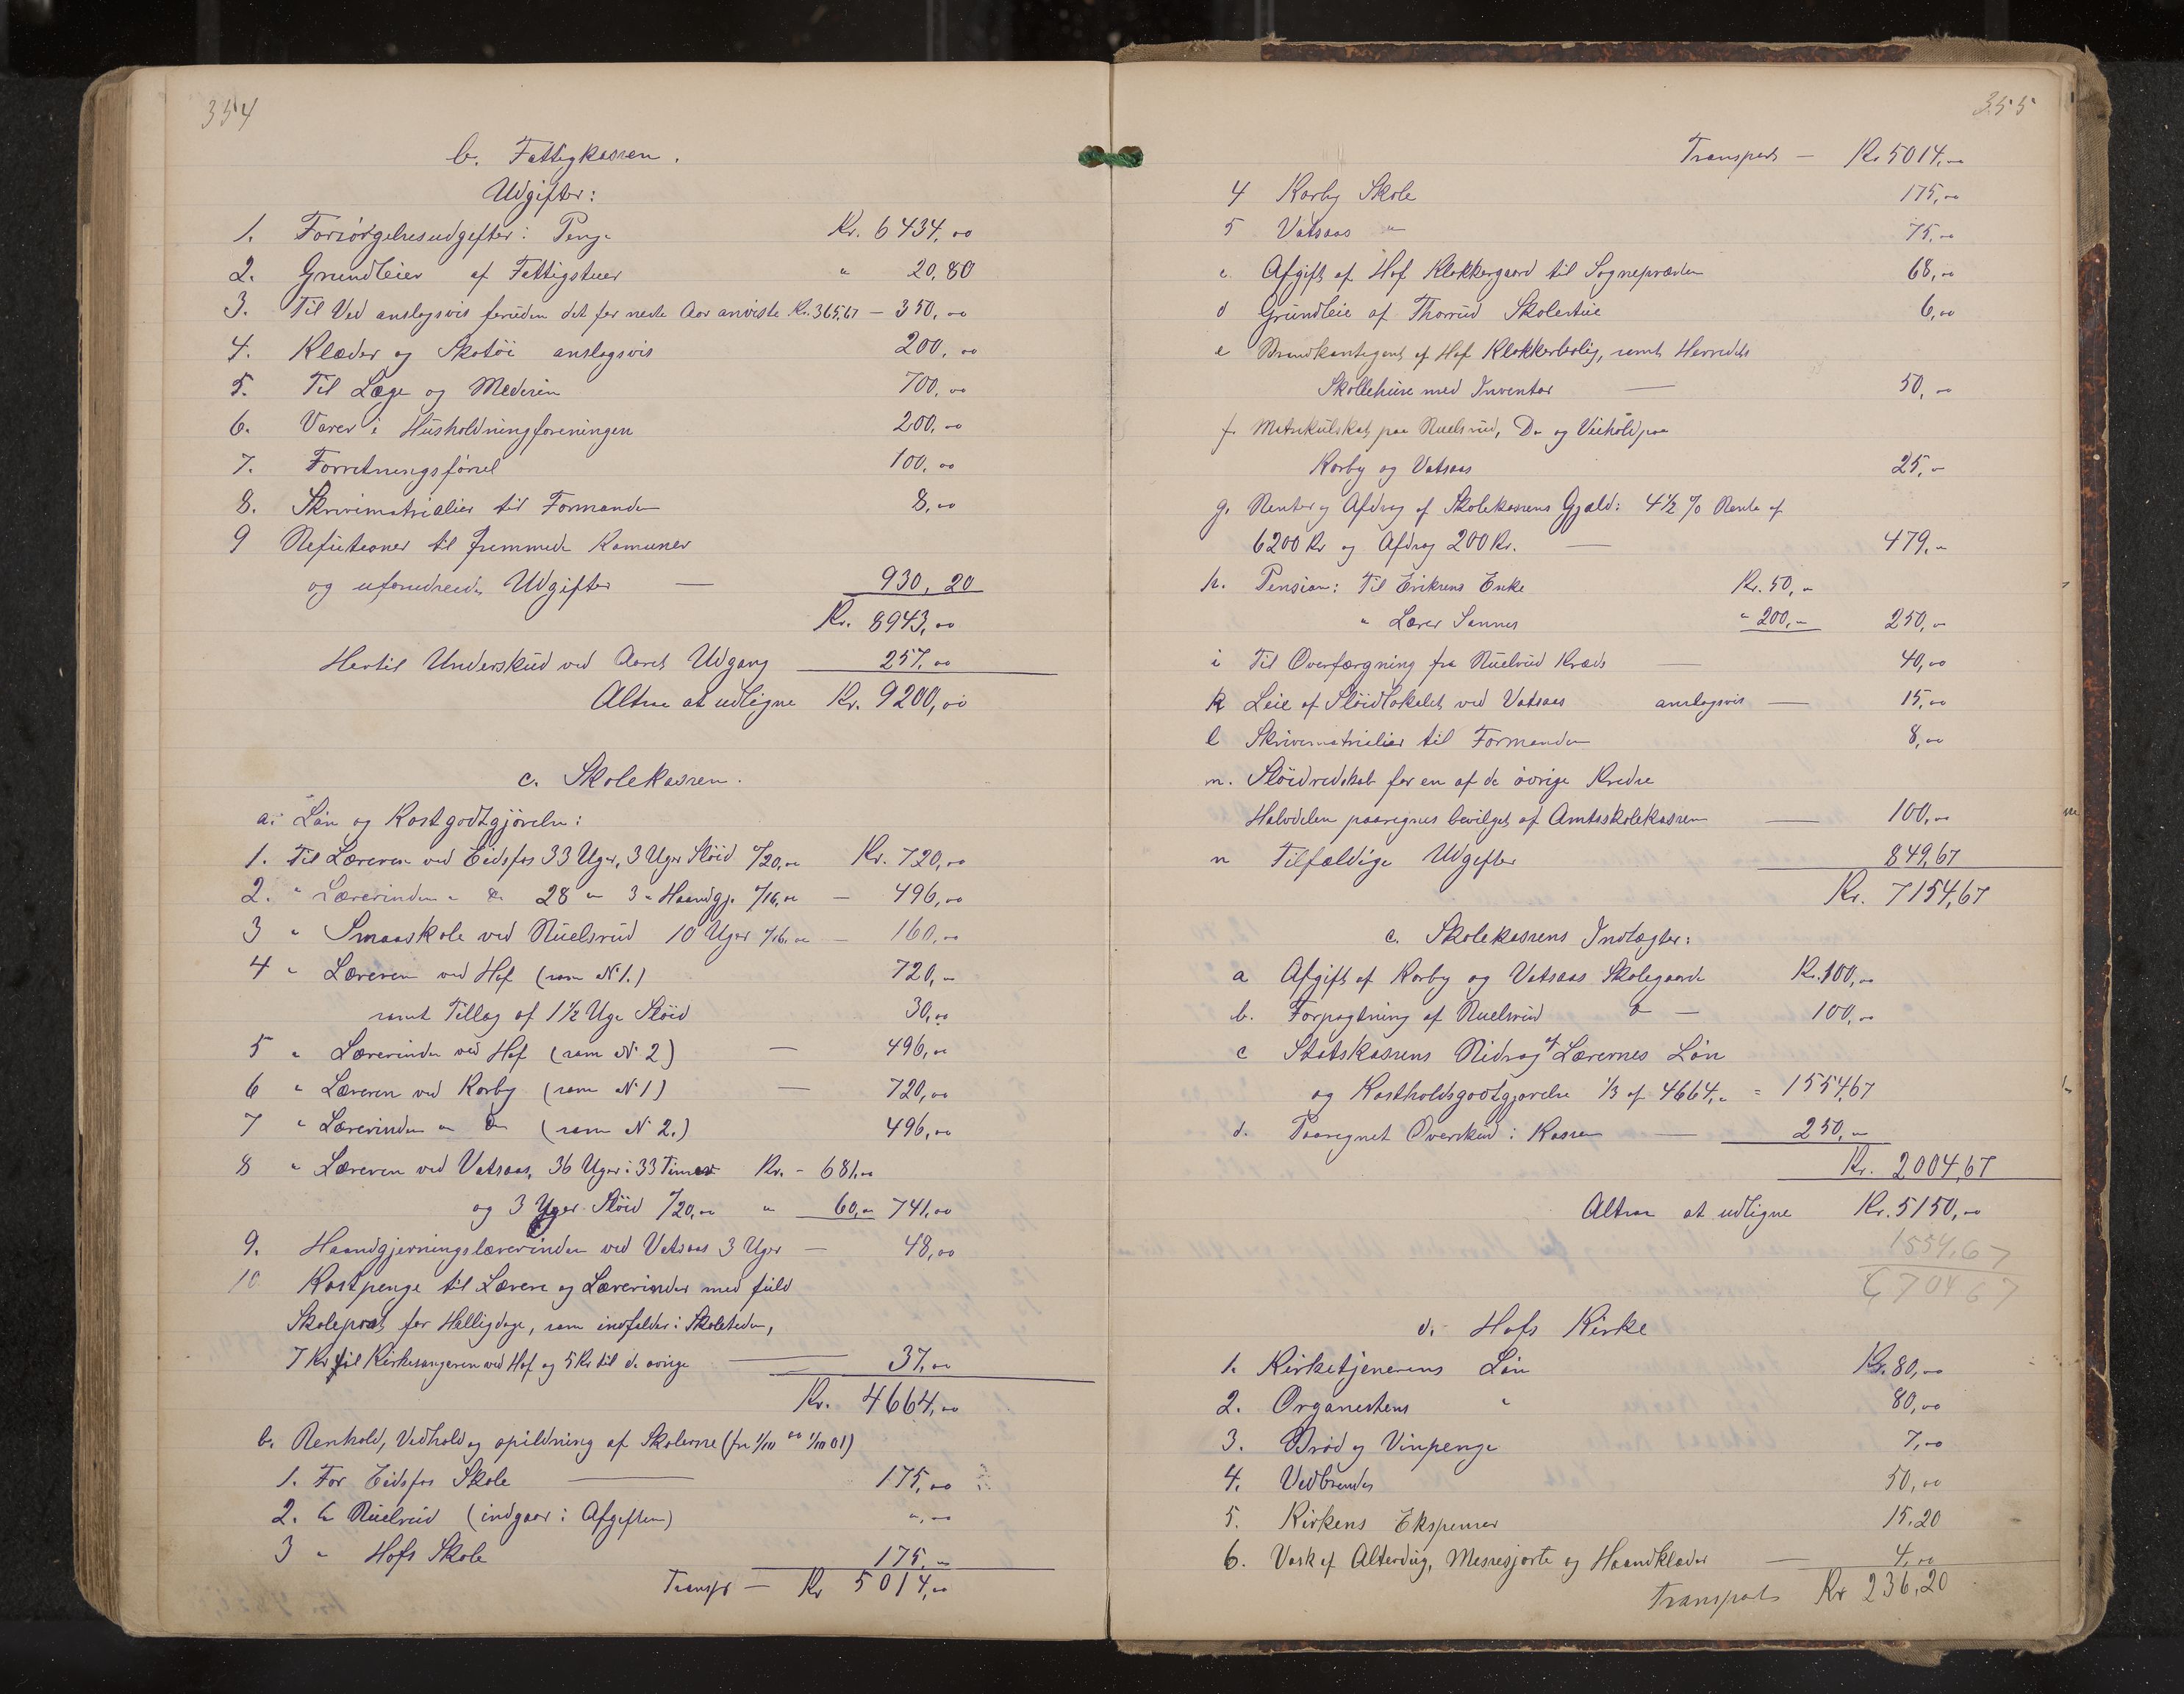 354
b. Fattigkassen.
Udgifter:
1. Forsørgelsesudgifter: Penge Kr. 6434,00
2. Grundleier af Fattigstuer " 20,80
3. Til Ved anslagsvis foruden det for neste Aar anviste Kr. 365,67 — 350,00
4. Klæder og Skotöi anslagsvis 200,00
5. Til Læge og Medesin 700,00
6. Varer i Husholdningforeningen 200,00
7. Forretningsförsel 100,00
8. Skrivimatrialier til Formanden 8,00
9 Refusioner til fremmede Komuner
og uforudseede Udgifter — 930,20
Kr. 8943,00
Hertil Underskud ved Aarets Udgang 257,00
Altsaa at udligne Kr. 9200,00
c. Skolekassen.
a. Løn og Kostgodtgjörelse:
1. Til Læreren ved Eidsfos 33 Uger, 3 Uger Slöid a/20,00 Kr. 720,00
2. " Lærerinden " Do 28 " 3 " Haandgj. a/16,00 — 496,00
3 " Smaaskole ved Ruelsrud 10 Uger a/16,00 — 160,00
4 " Læreren ved Hof (som No 1.) 720,00
samt Tillæg af 1½ Uge Slöid 30,00
5 " Lærerinden ved Hof (som No 2) — 496,00
6 " Læreren ved Korby (som No 1) — 720,00
7 " Lærerinden " Do (som No 2.) 496,00
8 " Læreren ved Vatsaas, 36 Uger i 33 Timer Kr. - 681,00
og 3 Uger Slöid a/20,00 " 60,00 741,00
9. Haandgjerningslærerinden ved Vatsaas 3 Uger — 48,00
10 Kostpenge til Lærere og Lærerinder med fuld
Skolepost for Helligdage, som indfalder i Skoletiden,
7 Kr til Kirkesangeren ved Hof og 5 Kr til de övrige — 37,00
Kr. 4664,00
b. Renhold, Vedhold og opildning af Skolerne (fra 1/10 00 1/10 01)
1. For Eidsfos Skole — 175,00
2. " Ruelsrud (indgaar i Afgiften) ",—
3 " Hofs Skole 175,—
Transp — Kr 5014,00
355
Transport — Kr 5014,00
4 Korby Skole 175,00
5 Vatsaas " 75,00
c. Afgift af Hof Klokkergaard til Sognepræsten 68,00
d Grundleie af Thorrud Skolestue 6,00
e Brandkontigent af Hof Klokkerbolig, samt Herredets
Skollehuse med Inventar — 50,—
f. Matrikulskat paa Ruelsrud, Do og Veihold paa
Korby og Vatsaas 25,—
g. Renter og Afdrag af Skolekassens Gjæld: 4½ % Rente af
6200 Kr og Afdrag 200 Kr. — 479,—
h. Pension: Til Eriksens Enke Kr. 50,—
" Lærer Sannes " 200,— 250,—
i Til Overfærgning fra Ruelsrud Kreds — 40,00
k Leie af Slöidlokalet ved Vatsaas anslagsvis — 15,00
l Skrivematrialier til Formanden 8,00
m. Slöidredskab for en af de övrige Kredse
Halvdelen paaregnes bevilget af Amtsskolekassen — 100,00
n Tilfældige Udgifter 849,67
Kr. 7154,67
c. Skolekassens Indtægter:
a Afgift af Korby og Vatsaas Skolegaarde Kr. 100,00
b. Forpagtning af Ruelsrud Do — 100,00
c Statskassens Bidrag af Lærernes Lön
og Kostholdsgodtgjørelse 1/3 af 4664,— = 1554,67
d. Paaregnet Overskud i Kassen — 250,—
Kr. 2004,67
Altsaa at udligne Kr. 5150,00
1554,67
6704 67
d. Hofs Kirke
1. Kirketjenerens Lön Kr. 80,00
2. Organistens " 80,00
3. Bröd og Vinpenge 7,00
4. Vedbrende 50,00
5. Kirkens Ekspenser 15,20
6. Vask af Alterdug, Messesjorte og Haandklæder — 4,00
Transport Kr 236,20